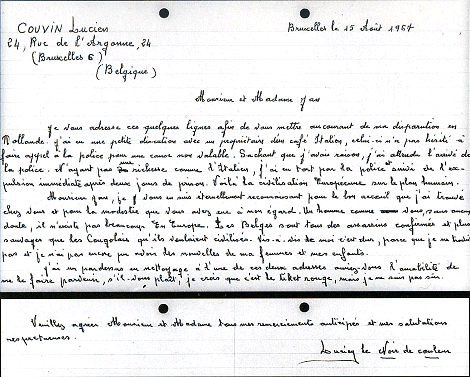 COUVIN Lucien
24, Rue de l'Argonne, 24
(Bruxelles 6)
(Belgique)
Bruxelles le 15 Août 1967
Monsieur et Madame
Je vous adresse ces quelques lignes afin de vous mettre au courant de ma disparution en
Hollande. j'ai eu une petite discution avec un propriétaire des café Italien, celui-ci n'a pas hésité à
faire appel à la police pour une cause non valable. Sachant que j'avais raison, j'ai attendu l'arrivé de
la police. N'ayant pas une richesse comme l'Italien, j'ai eu tort par la police et suivi de l'ex-
pulsion immédiate après deux jours de prison. Voilà la civilisation Européenne sur le plan humain.
Monsieur, je vous en suis éternellement reconnaissant pour le bon accueil que j'ai trouvé
chez vous et pour la modestie que vous avez eue à mon égard. Un homme comme vous, sans aucun
doute, il n'existe pas beaucoup En Europe. Les Belges sont tous des assassins confirmés et plus
sauvages que les Congolais qu'ils veulaient civilisés. Vis-à-vis de moi c'est dur, parce que je ne
pas et je n'ai pas encore pu avoir des nouvelles de ma femmes et mes enfants.
J'ai un pardessus en nettoyage à l'une de ces deux adresses auriez-vous l'amabilité de
me le faire parvenir, s'il-vous plait, je crois que c'est le ticket rouge, mais je ne suis pas sûr.
Veuillez agréer Monsieur et Madame tous mes remerciements anticipés et mes salutations
respectueuses.
Lucien le Noir de couleur